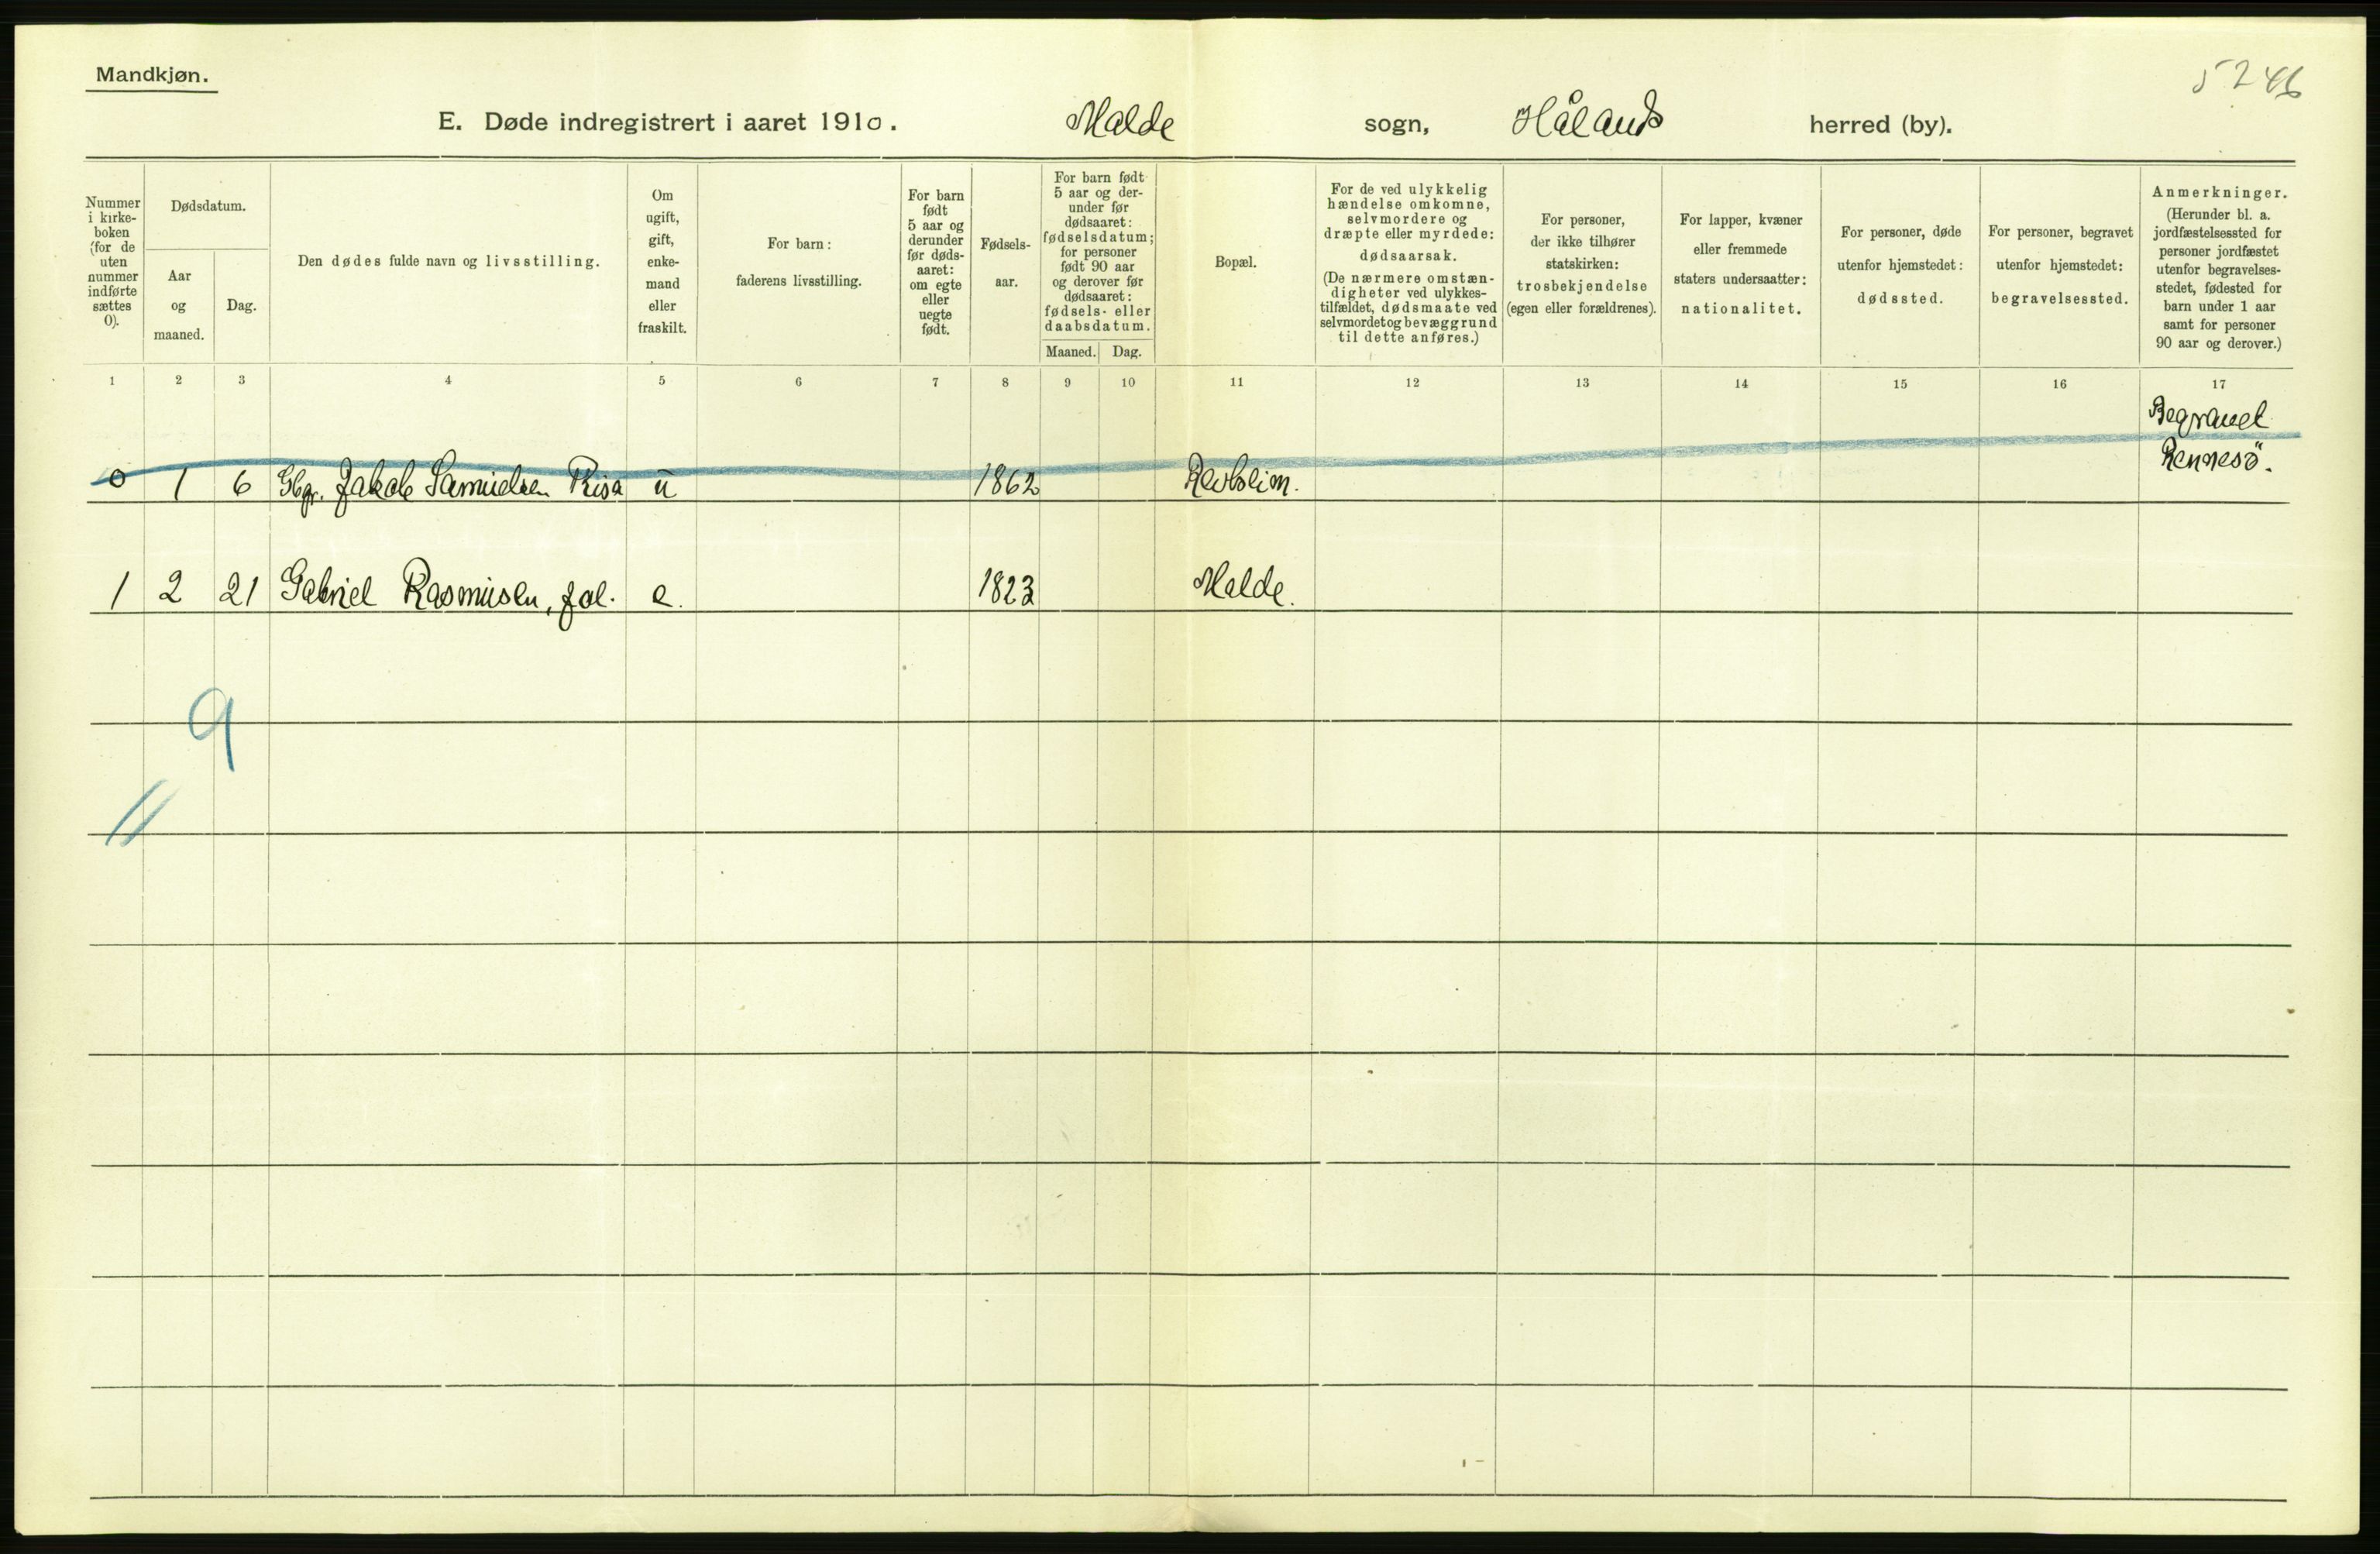 Mandkjøn.
5246
E. Døde indregistrert i aaret 1910. Malde sogn, Håland herred (by).
Nummer i kirke-boken (for de uten nummer indførte sættes 0).
Dødsdatum.
Aar og maaned.
Dag.
Den dødes fulde navn og livsstilling.
Om ugift, gift, enke-mand eller fraskilt.
For barn: faderens livsstilling.
For barn født 5 aar og derunder før døds-aaret: om egte eller uegte født.
Fødsels-aar.
For barn født 5 aar og der-under før dødsaaret: fødselsdatum; for personer født 90 aar og derover før dødsaaret: fødsels- eller daabsdatum.
Maaned. Dag.
Bopæl.
For de ved ulykkelig hændelse omkomne, selvmordere og dræpte eller myrdede: dødsaarsak. (De nærmere omstæn-digheter ved ulykkes-tilfældet, dødsmaate ved selvmordet og bevæggrund til dette anføres.)
For personer, der ikke tilhører statskirken: trosbekjendelse (egen eller forældrenes).
For lapper, kvæner eller fremmede staters undersaatter: nationalitet.
For personer, døde utenfor hjemstedet: dødssted.
For personer, begravet utenfor hjemstedet: begravelsessted.
Anmerkninger. (Herunder bl. a. jordfæstelsessted for personer jordfæstet utenfor begravelses-stedet, fødested for barn under 1 aar samt for personer 90 aar og derover.)
1 2 3 4 5 6 7 8 9 10 11 12 13 14 15 16 17
0 1 6 Gbr. Jakob Samuelsen Risa u 1862 Revheim. Begravet Rennesö.
1 2 21 Gabriel Rasmusen, fol. e. 1823 Malde.
9